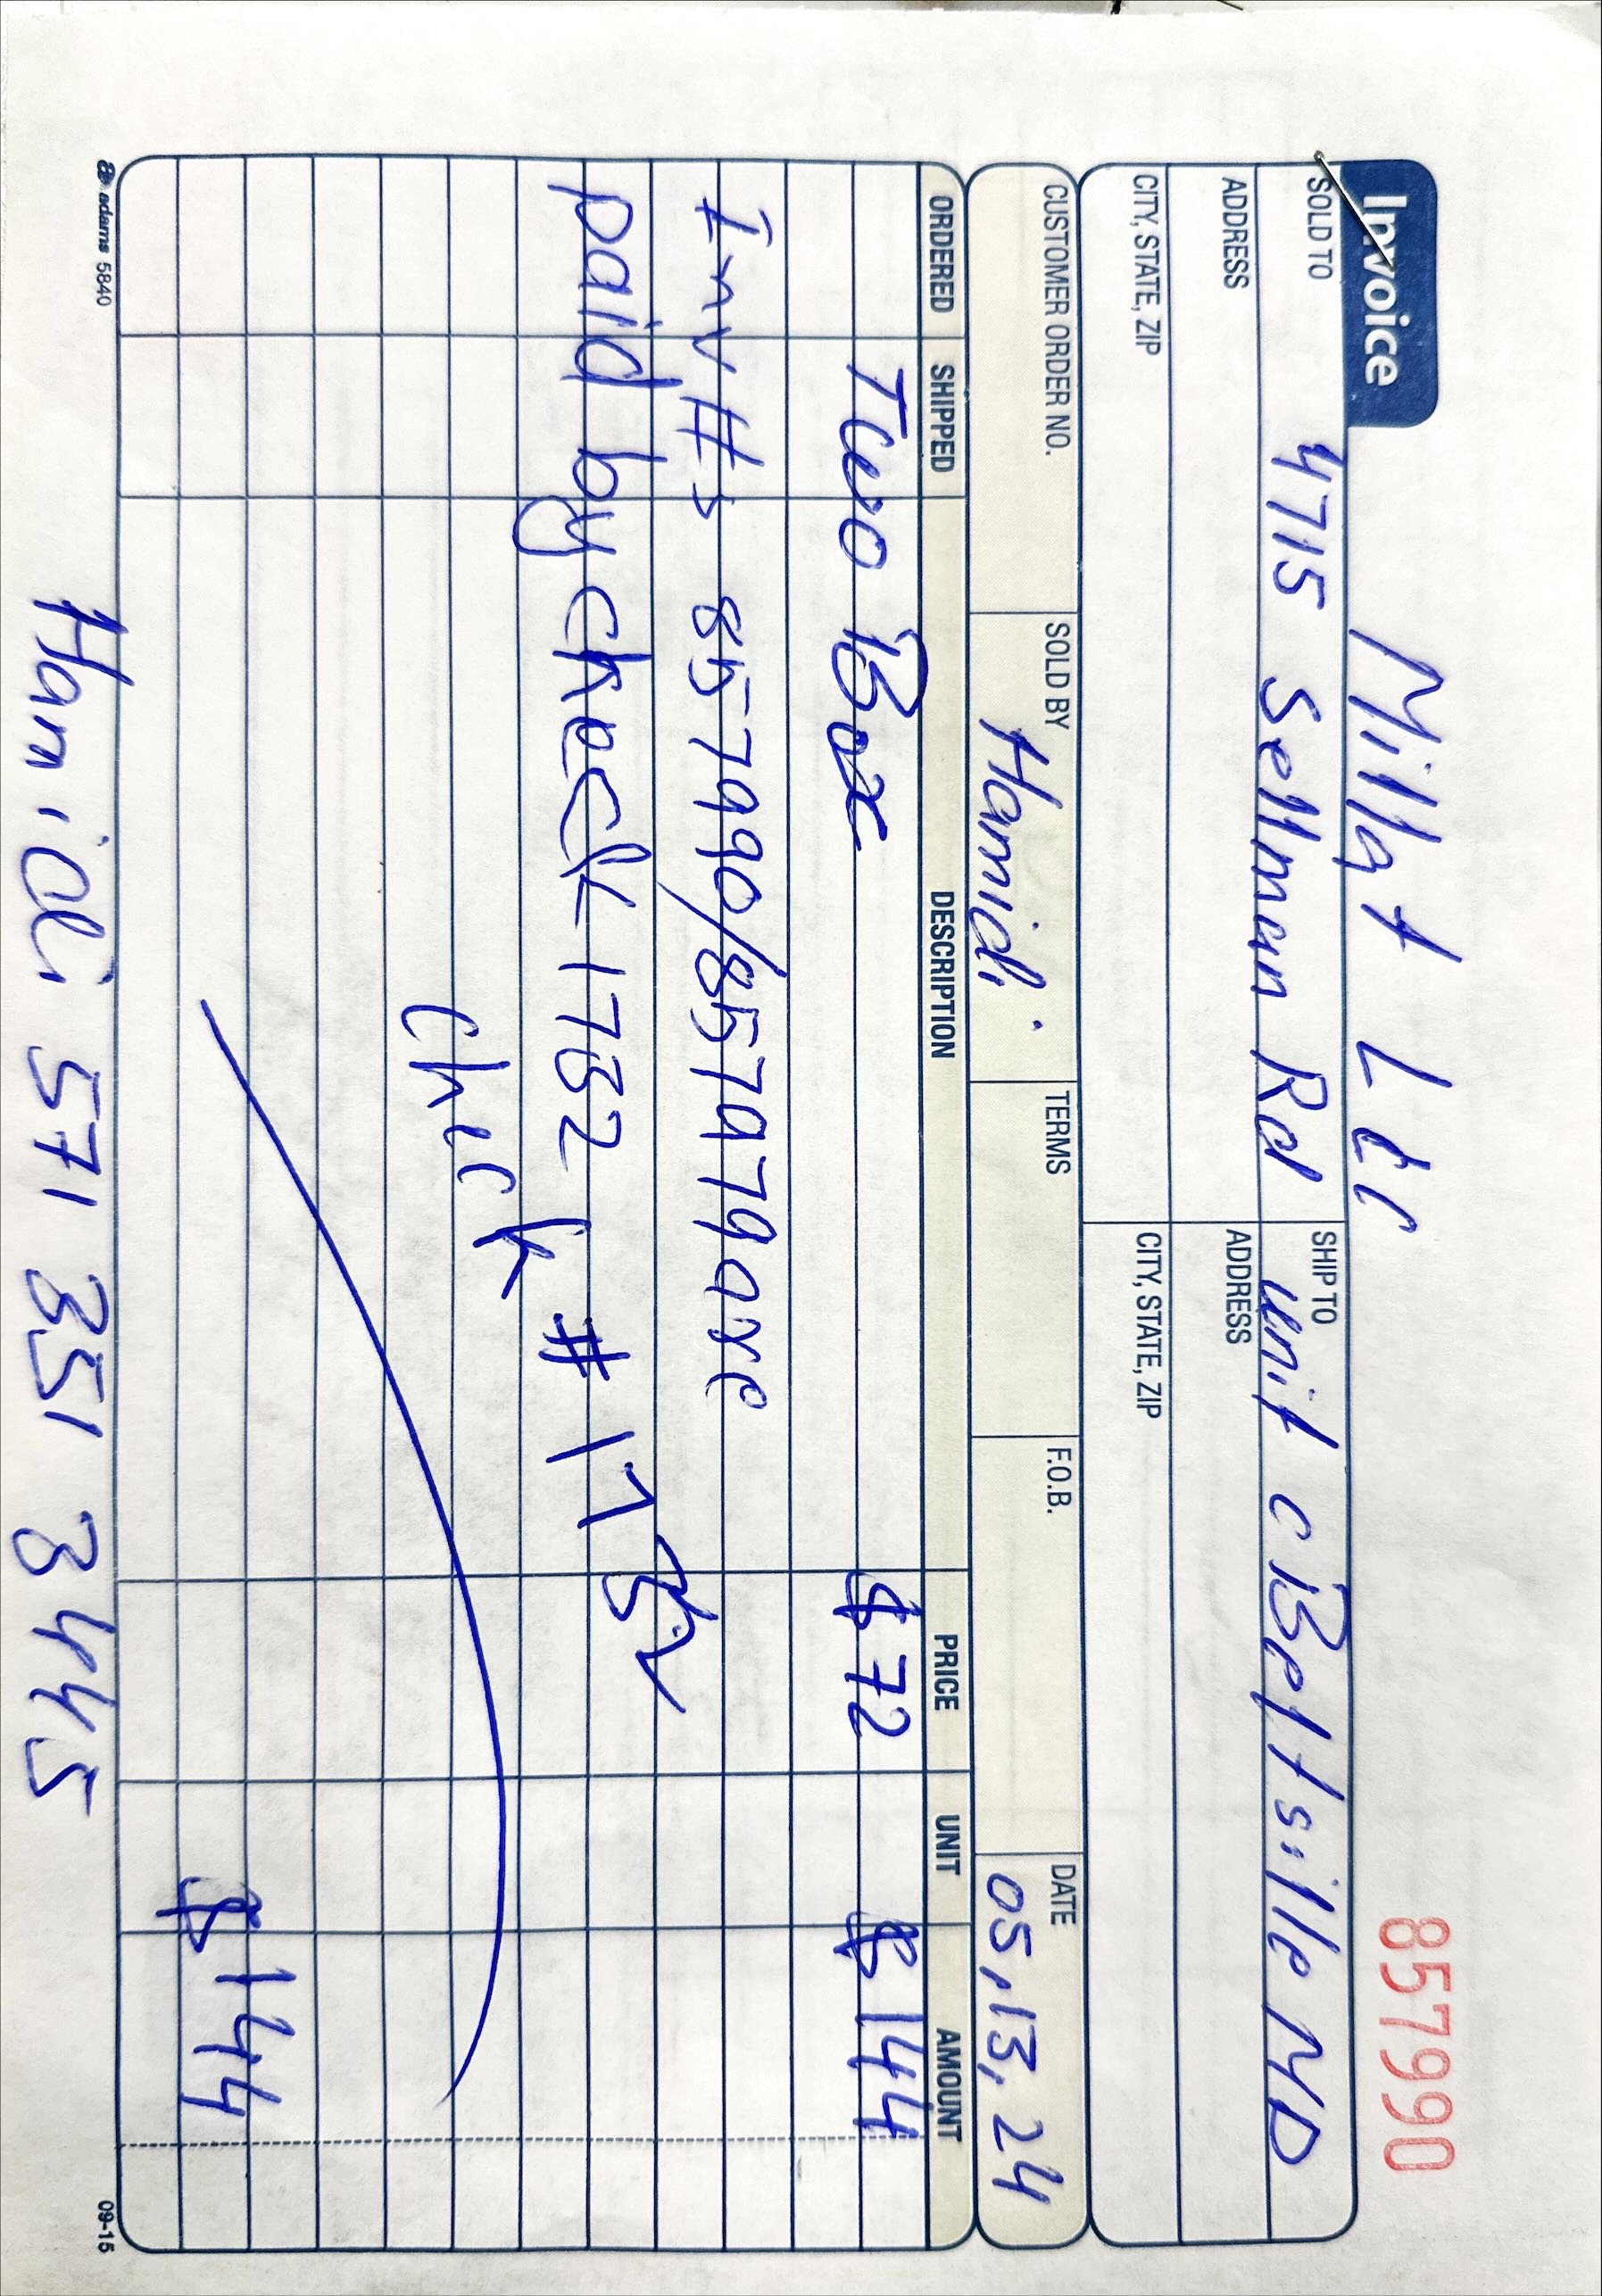 Invoice
Millat LLC
857990
SOLD TO 4715 Sellman Rd
SHIP TO unit c Beltsille MD
ADDRESS
ADDRESS
CITY, STATE, ZIP
CITY, STATE, ZIP
CUSTOMER ORDER NO.
SOLD BY Hamidi
TERMS
F.O.B.
DATE 05,13,24
ORDERED SHIPPED DESCRIPTION PRICE UNIT AMOUNT
Two Box $72 $144
Inv #s 857990/857979 are
paid by check 1732
check # 1732
$144
adams 5840
09-15
Hamidi 571 351 3445